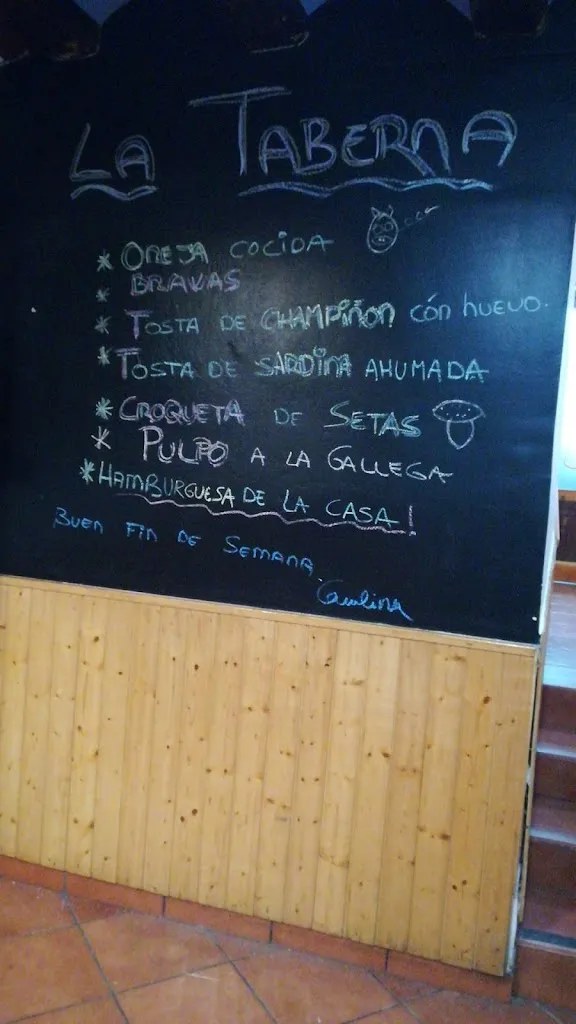 LA TABERNA
* OREJA COCIDA
* BRAVAS
* TOSTA DE CHAMPIÑON CÓN HUEVO.
* TOSTA DE SARDINA AHUMADA
* CROQUETA DE SETAS
* PULPO A LA GALLEGA
* HAMBURGUESA DE LA CASA!
BUEN FIN DE SEMANA.
Carolina